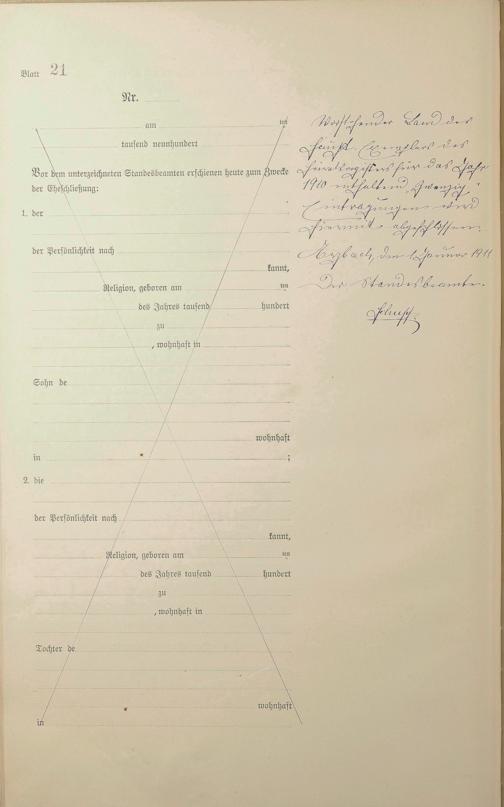 Blatt 21
Nr.
am ten
tausend neunhundert
Vor dem unterzeichneten Standesbeamten erschienen heute zum Zwecke
der Eheschließung:
1. der
der Persönlichkeit nach
kannt,
Religion, geboren am ten
des Jahres tausend hundert
zu
, wohnhaft in
Sohn de
wohnhaft
in ;
2. die
der Persönlichkeit nach
kannt,
Religion, geboren am ten
des Jahres tausend hundert
zu
, wohnhaft in
Tochter de
wohnhaft
in
Vorstehender Band des
Haupt-Exemplars des
Heiratsregisters für das Jahr
1910 enthaltend „Zwanzig“
Eintragungen wird
hiermit abgeschlossen.
den 1. Januar 1911
Der Standesbeamte.